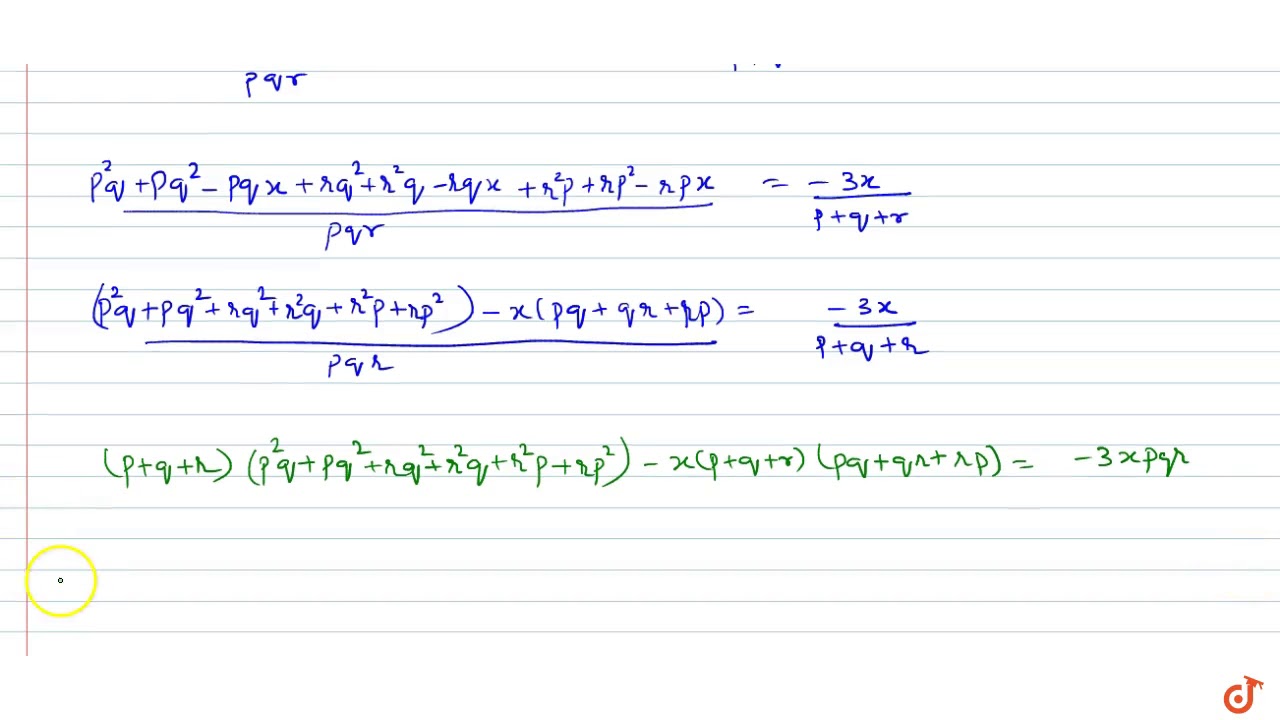 pqr
p²q + pq² - pqx + rq² + r²q - rqx + r²p + rp² - rpx = -3x
pqr p+q+r
(p²q + pq² + rq² + r²q + r²p + rp²) - x(pq + qr + rp) = -3x
pqr p+q+r
(p+q+r) (p²q + pq² + rq² + r²q + r²p + rp²) - x(p+q+r) (pq + qr + rp) = -3xpqr